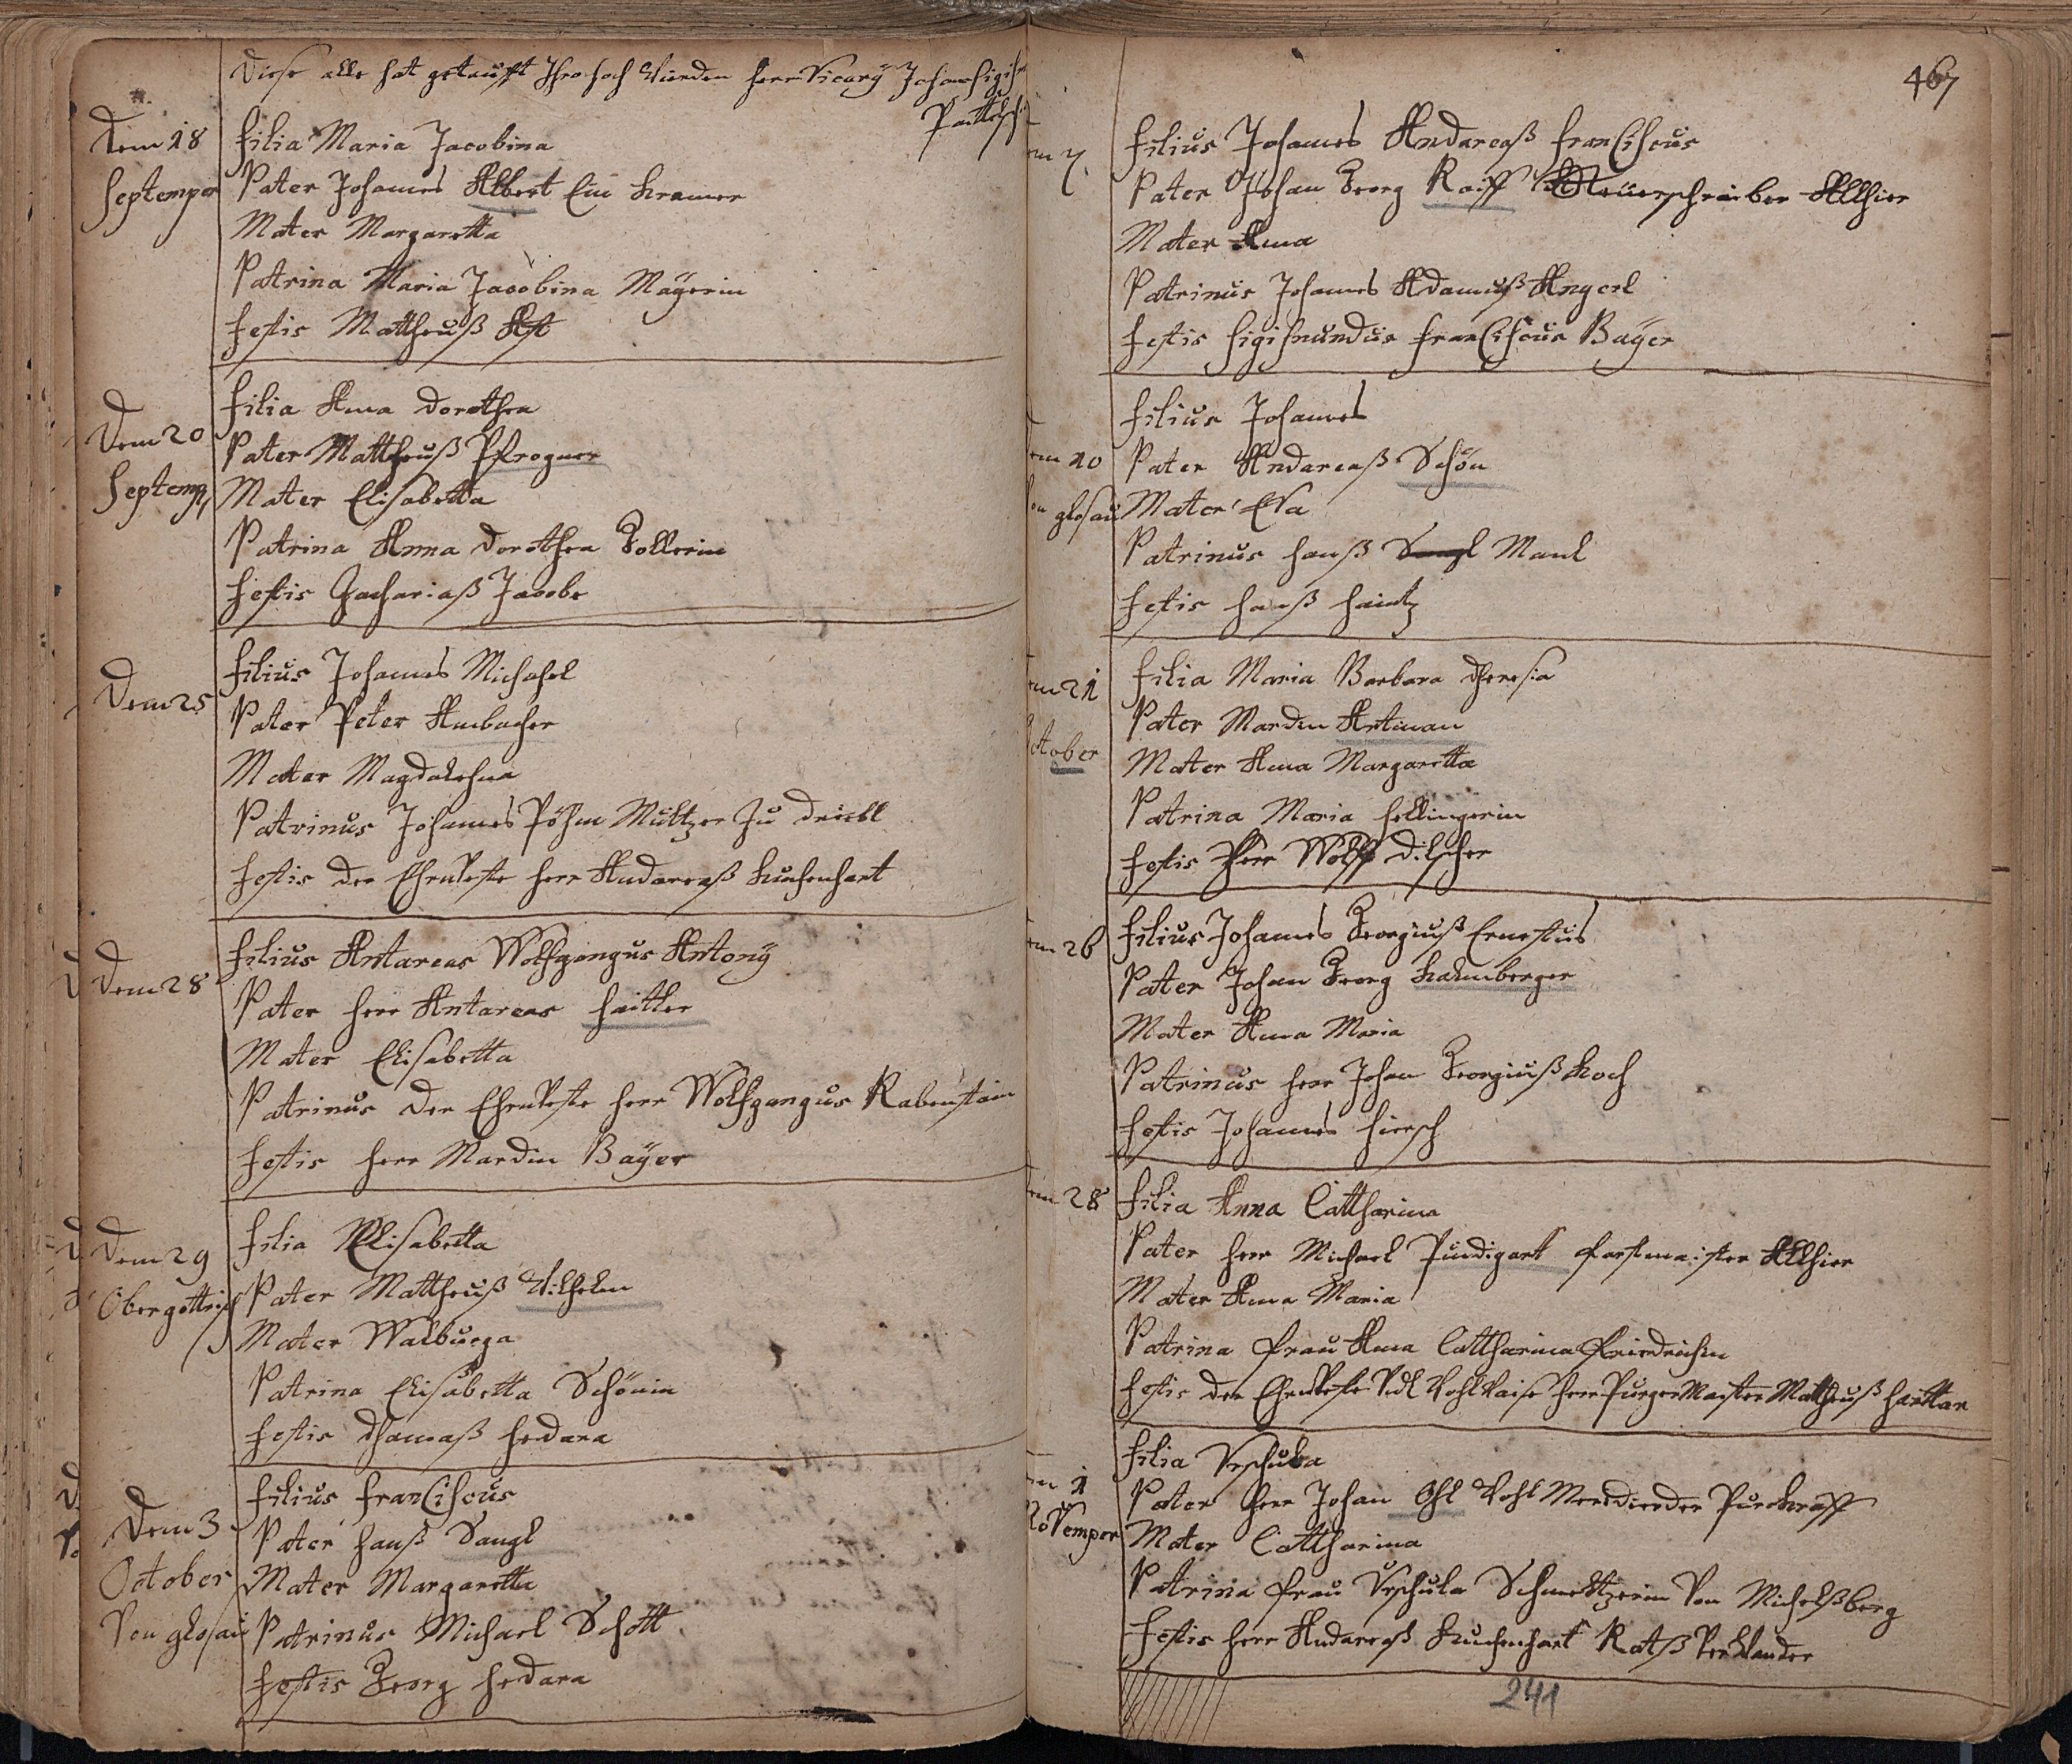 Diese alle hat getaufft Ihro hoch Würden Herr Vicary Johan Sigis
Dem 18
Septemper
Filia Maria Jacobina
Pater Johannes Albert Ein Kramer
Mater Margaretta
Patrina Maria Jacobina Mäyerin
Testis Mattheuß Ast
Dem 20
Septemp
Filia Anna Dorothea
Pater Mattheuß Pfrogner
Mater Elisabetta
Patrina Anna Dorothea Zollerin
Testis Zachariaß Jacobe
Dem 25
Filius Johannes Michahel
Pater Peter Ambacher
Mater Magdalehna
Patrinus Johannes Pöhm Mültzer Zu
Testis Der Ehrnveste Herr Andareaß Kuchenhart
Dem 28
Filius Antareas Wolfgangus Antony
Pater Herr Antareas Haitler
Mater Elisabetta
Patrinus Der Ehrnveste Herr Wolfgangus Rabenstain
Testis Herr Mardin Bäyer
Dem 29
Obergottrisch
Filia Elisabetta
Pater Mattheuß Wilhelm
Mater Walburga
Patrina Elisabetta Schönin
Testis Thomaß Hedara
Dem 3
October
Von glosau
Filius Franciscus
Pater Hanß Sangl
Mater Margaretta
Patrinus Michael Schott
Testis Georg Hedara
467
em 7
Filius Johannes Andareaß Franciscus
Pater Johan Georg Raiff Steüerschreiber Allhier
Mater Anna
Patrinus Johannes Adamuß Angerl
Testis Sigismundus Franciscus Bäyer
em 10
on glosau
Filius Johannes
Pater Andareaß Schön
Mater Eva
Patrinus Hanß Sangl Manl
Testis Hanß Haintz
em 21
October
Filia Maria Barbara Theresia
Pater Mardin Artman
Mater Anna Margaretta
Patrina Maria Hellingerin
Testis Herr Wolff Dilscher
em 26
Filius Johannes Georgiuß Ernestus
Pater Johan Georg Kalmberger
Mater Anna Maria
Patrinus Herr Johan Georgiuß Koch
Testis Johannes Hirsch
em 28
Filia Anna Cattharina
Pater Herr Michael Pundigart Forstmaister Allhier
Mater Anna Maria
Patrina Frau Anna Cattharina Friedrichin
Testis Der Ehrnveste Vndt Wohl Waise Herr PurgerMaister Mattheuß Harttan
em 1
NoVemper
Filia Urschula
Pater Herr Johan Ohl Wohl
Mater Cattharina
Patrina Frau Urschula Schmeltzerin Von Michelßberg
Testis Herr Andareaß Kuchenhart Ratß Verwander
241